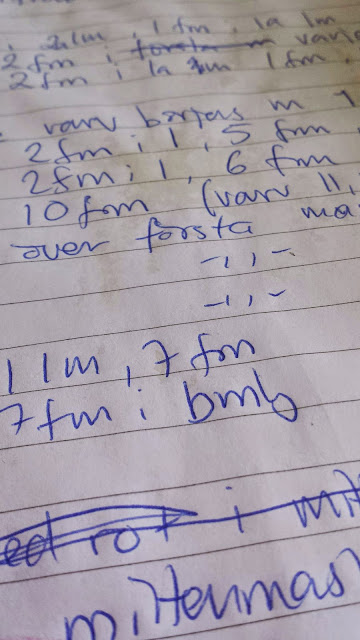 2lm, 1 fm, 1a lm
2 fm i första m varv
2 fm i 1a lm 1 fm.
varv börjas m 1
2fm i 1, 5 fm
2fm i 1, 6 fm
10 fm (varv 11,
över första ma
-,,-
-,,-
1 lm, 7 fm
7 fm i bmb
rot i mit
m i Hermas